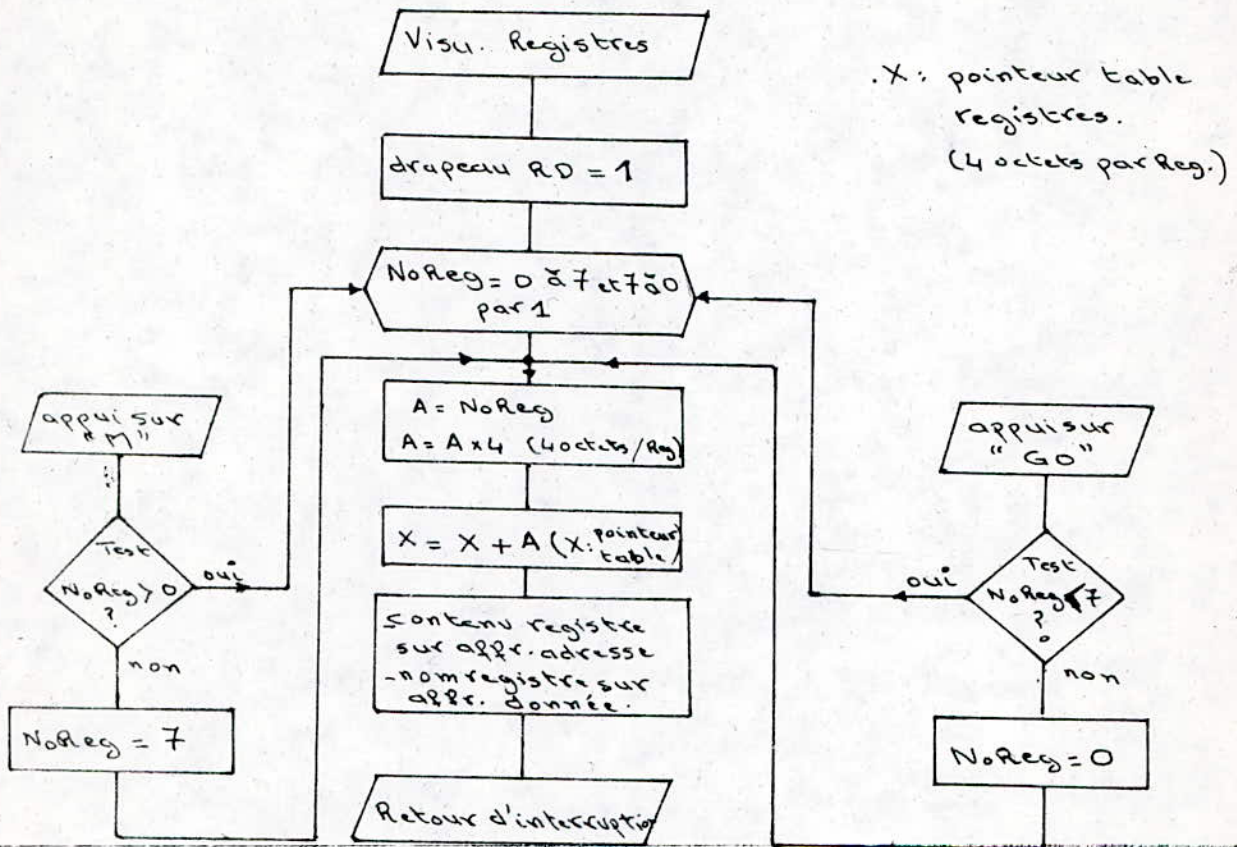 Visu. Registres
. X : pointeur table
registres.
(4 octets par Reg.)
drapeau RD = 1
NoReg = 0 à 7 et 7 à 0
par 1
A = NoReg
A = A x 4 (4 octets / Reg)
X = X + A (X: pointeur
table)
contenu registre
sur affr. adresse
-nom registre sur
affr. donnée.
Retour d'interruption
appui sur
"M"
Test
NoReg > 0
?
oui
non
NoReg = 7
appui sur
"GO"
Test
NoReg < 7
?
oui
non
NoReg = 0